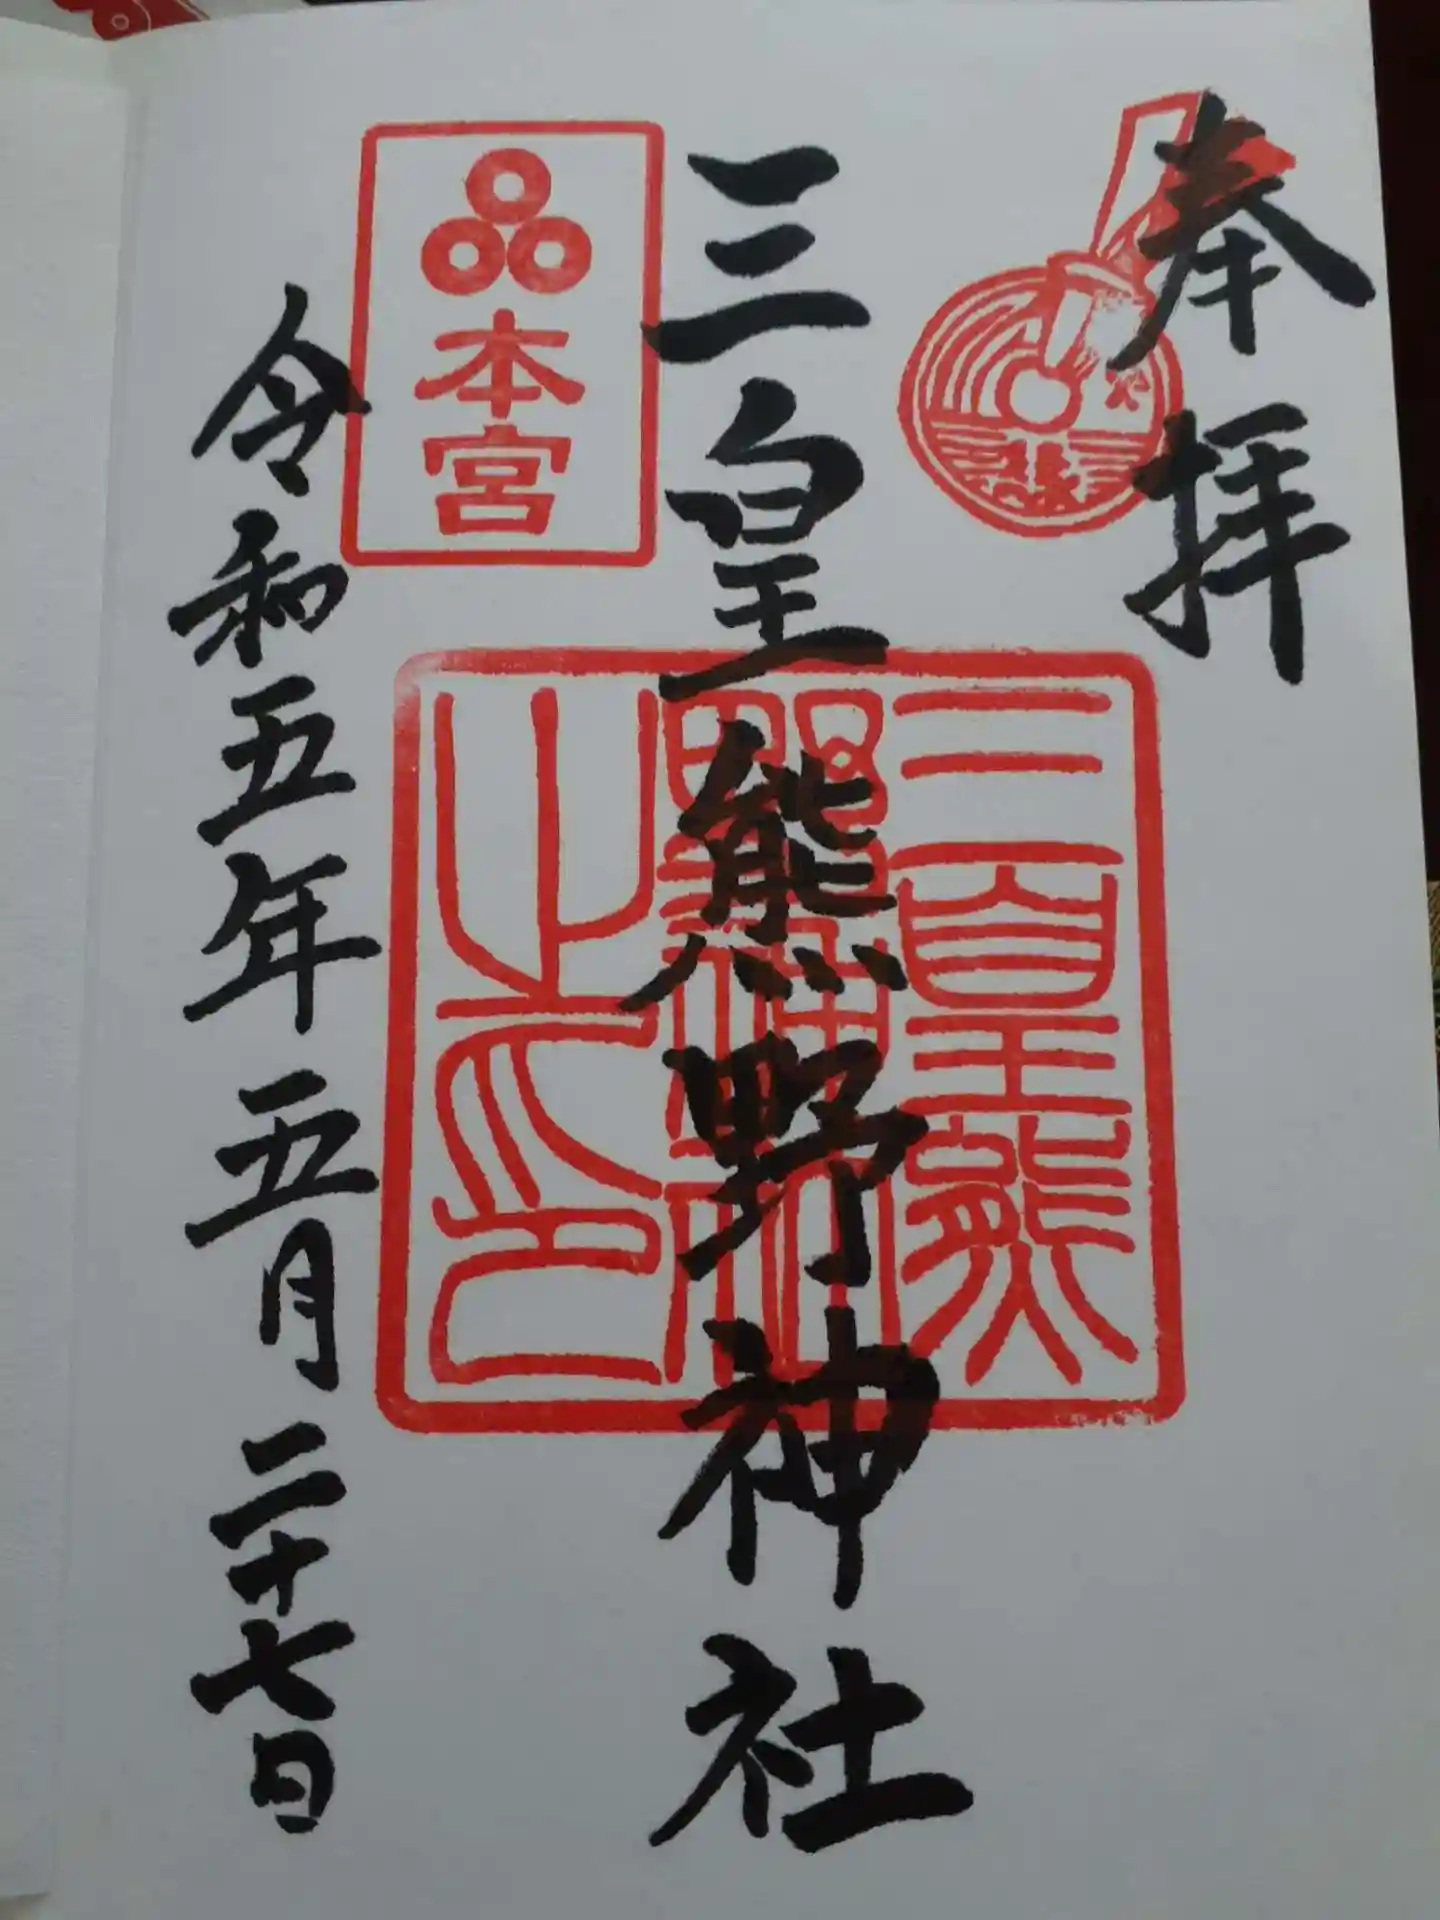 奉拝
三皇熊野神社
三皇熊
野神社
之印
本宮
令和五年五月二十七日